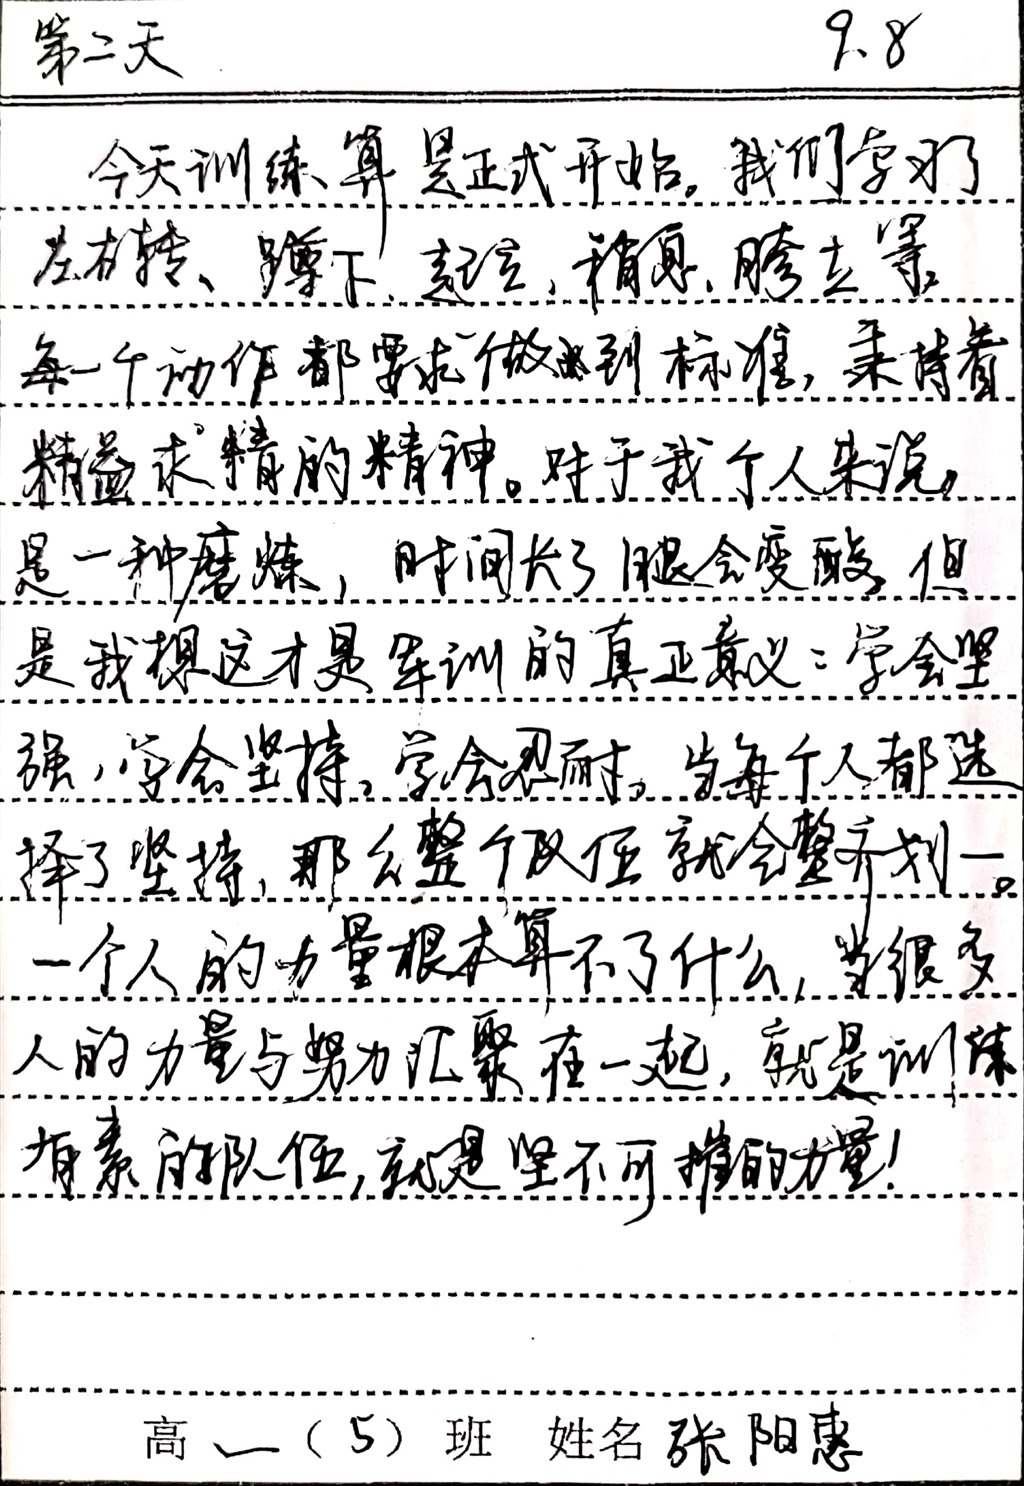 第二天 9.8
今天训练算是正式开始。我们学习了
左右转、蹲下、起立、稍息、跨立等,
每一个动作都要求做到标准,秉持着
精益求精的精神。对于我个人来说,
是一种磨炼,时间长了腿会变酸,但
是我想这才是军训的真正意义:学会坚
强,学会坚持,学会忍耐。当每个人都选
择了坚持,那么整个队伍就会整齐划一。
一个人的力量根本算不了什么,当很多
人的力量与努力汇聚在一起,就是训练
有素的队伍,就是坚不可摧的力量!
高一(5)班 姓名张阳惠